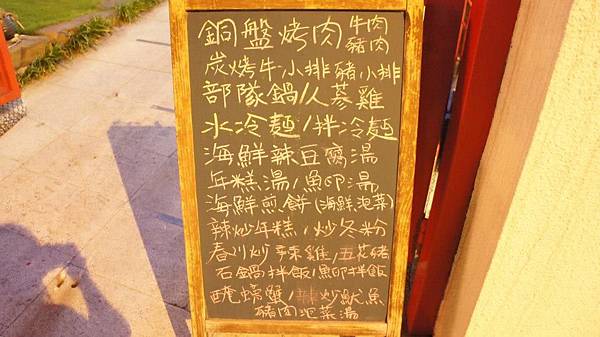 銅盤烤肉 牛肉
豬肉
炭烤牛小排豬小排
部隊鍋/人蔘雞
水冷麵/拌冷麵
海鮮辣豆腐湯
年糕湯/魚卵湯
海鮮煎餅(海鮮泡菜)
辣炒年糕/炒冬粉
春川炒辣雞/五花豬
石鍋拌飯/魚卵拌飯
醃螃蟹/辣炒魷魚
豬肉泡菜湯